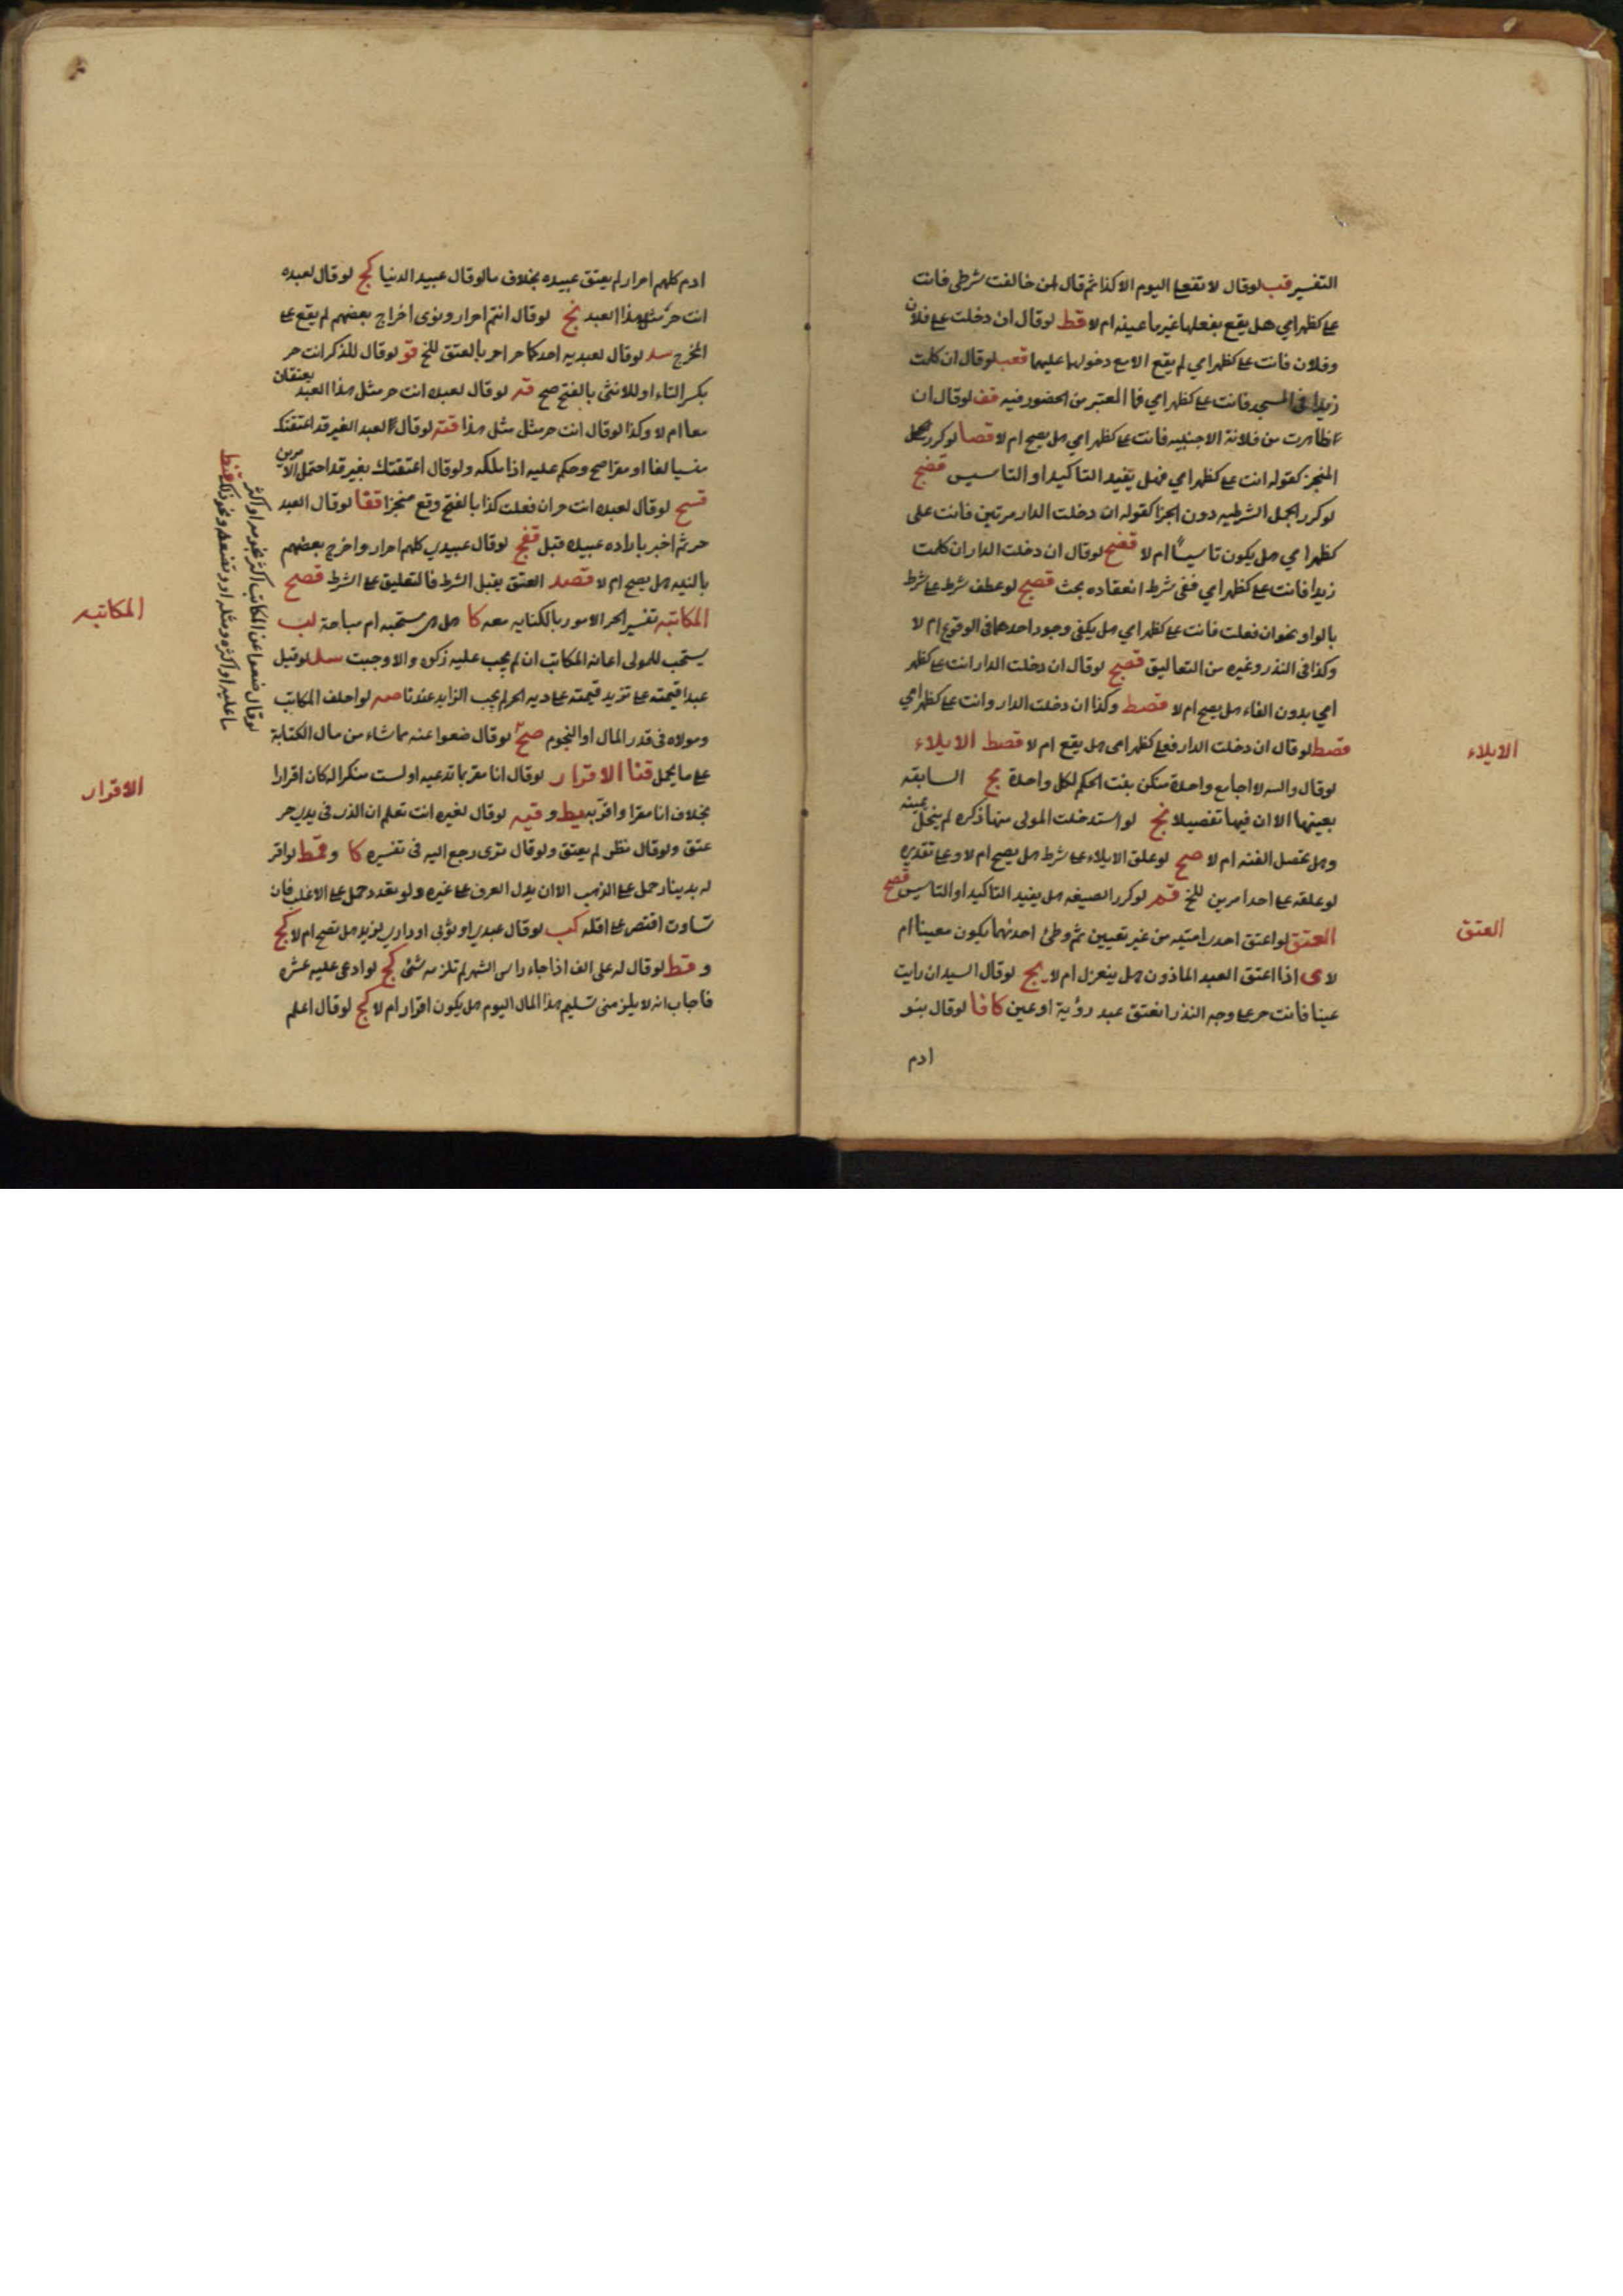 التفسير قب لوقال لا تفعلي اليوم الا كذا ثم قال ان خالفت شرطي فانت
علي كظهر امي هل يقع بفعلها غير ما عينه ام لا قط لوقال ان دخلت علي فلان
وفلان فانت علي كظهر امي لم يقع الا مع دخولها عليهما قعب لوقال ان كلمت
زيدا في المسجد فانت علي كظهر امي فما المعتبر من الحضور فيه قف لوقال ان
ظاهرت من فلانة الاجنبيه فانت علي كظهر امي هل يصح ام لا قصا لو كرر
المنجز كقوله انت علي كظهر امي فهل يفيد التاكيد او التاسيس
لو كرر الجمل الشرطيه دون الجزا كقوله ان دخلت الدار مرتين فانت على
كظهر امي هل يكون تاسيسا ام لا لوقال ان دخلت الدار ان كلمت
زيدا فانت علي كظهر امي ففى شرط انعقاده بحث لو عطف شرط على شرط
بالواو نحو ان فعلت فانت علي كظهر امي هل يكفى وجود احدهما فى الوقوع ام لا
وكذا فى النذر وغيره من التعاليق لوقال ان دخلت الدار انت علي كظهر
امي بدون الفاء هل يصح ام لا قصط وكذا ان دخلت الدار وانت علي كظهر امي
قصط لوقال ان دخلت الدار فعلي كظهر امى هل يقع ام لا قصط الايلاء
الايلاء
لوقال والله لا اجامع واحدة منكن بقت الحكم لكل واحدة السابقه
بعينها الا ان فيها تفصيلا لو استدخلت المولى منها ذكره لم ينحل يمينه
وهل تحصل الفئه ام لا صح لو علق الايلاء على شرط هل يصح ام لا وعلى تقديره
لو علقه على احد امرين للخ لو كرر الصيغه هل يفيد التاكيد او التاسيس
العتق لو اعتق احدى امتيه من غير تعيين ثم وطئ احدهما يكون معينا ام
العتق
لا ى اذا اعتق العبد الماذون هل ينعزل ام لا يج لوقال السيد ان رايت
عينا فانت حر على وجه النذر انعتق عبد رؤية اوعين كا فا لوقال بنو
ادم
ادم كلهم احرار لم يعتق عبيده بخلاف مالوقال عبيد الدنيا كج لوقال لعبده
انت حر مثل هذا العبد نج لوقال انتم احرار ونوى اخراج بعضهم لم يقع على
المخرج سد لوقال لعبديه احدكما حر امر بالعتق للخ قو لوقال للذكر انت حر
بكسر التاء او للانثى بالفتح صح لوقال لعبده انت حر مثل هذا العبد يعتقان
معا ام لا وكذا لوقال انت حر مثل مثل هذا لوقال لعبد الغير قد اعتقتك
منسيا لغا او مقرا صح وحكم عليه اذا ملكه ولوقال اعتقتك بغير قد احتمل الامرين
لوقال لعبده انت حر ان فعلت كذا بالفتح وقع منجزا ققا لوقال العبد
حر ثم اخبر باراده عبيده قبل لوقال عبيدي كلهم احرار واخرج بعضهم
بالنيه هل يصح ام لا قصد العتق يقبل الشرط فالتعليق على الشرط قصح
المكاتبه تفسير الحر الامور بالكنايه معه كا هل هى مستحبه ام مباحة لب
المكاتبه
يستحب للمولى اعانه المكاتب ان لم يجب عليه زكوه والا وجبت لو قيل
عبدا قيمته على تزيد قيمته على ديه الحر لم يجب الزايد عندنا لو احلف المكاتب
ومولاه فى قدر المال او النجوم صح لوقال ضعوا عنه ما شاء من مال الكتابة
على ما يحمل قنا الاقرار لوقال انا مقر بما تدعيه او لست منكرا له كان اقرارا
الاقرار
بخلاف انا مقرا واقر به يط وقيه لوقال لغيره انت تعلم ان الذى فى يدي حر
عتق ولوقال نظن لم يعتق ولوقال ترى رجع اليه فى تفسيره كا لو اقر
له بدينار حمل على الذهب الا ان يدل العرف على غيره ولو تعدد حمل على الاغلب فان
تساوت اقتصر على اقله كب لوقال عبدي او ثوبى او داري لزيد هل تصح ام لا كج
و قط لوقال له على الف اذا جاء راس الشهر لم تلزمه شئ كج لو ادعى عليه عشره
فاجاب انه لا يلزمنى تسليم هذا المال اليوم هل يكون اقرارا ام لا كج لوقال اعلم
لوقال ضعوا عن المكاتب اكثر نجومه او اكثر
ما عليه او اكثره ومثله او ونصفه ونحو ذلك